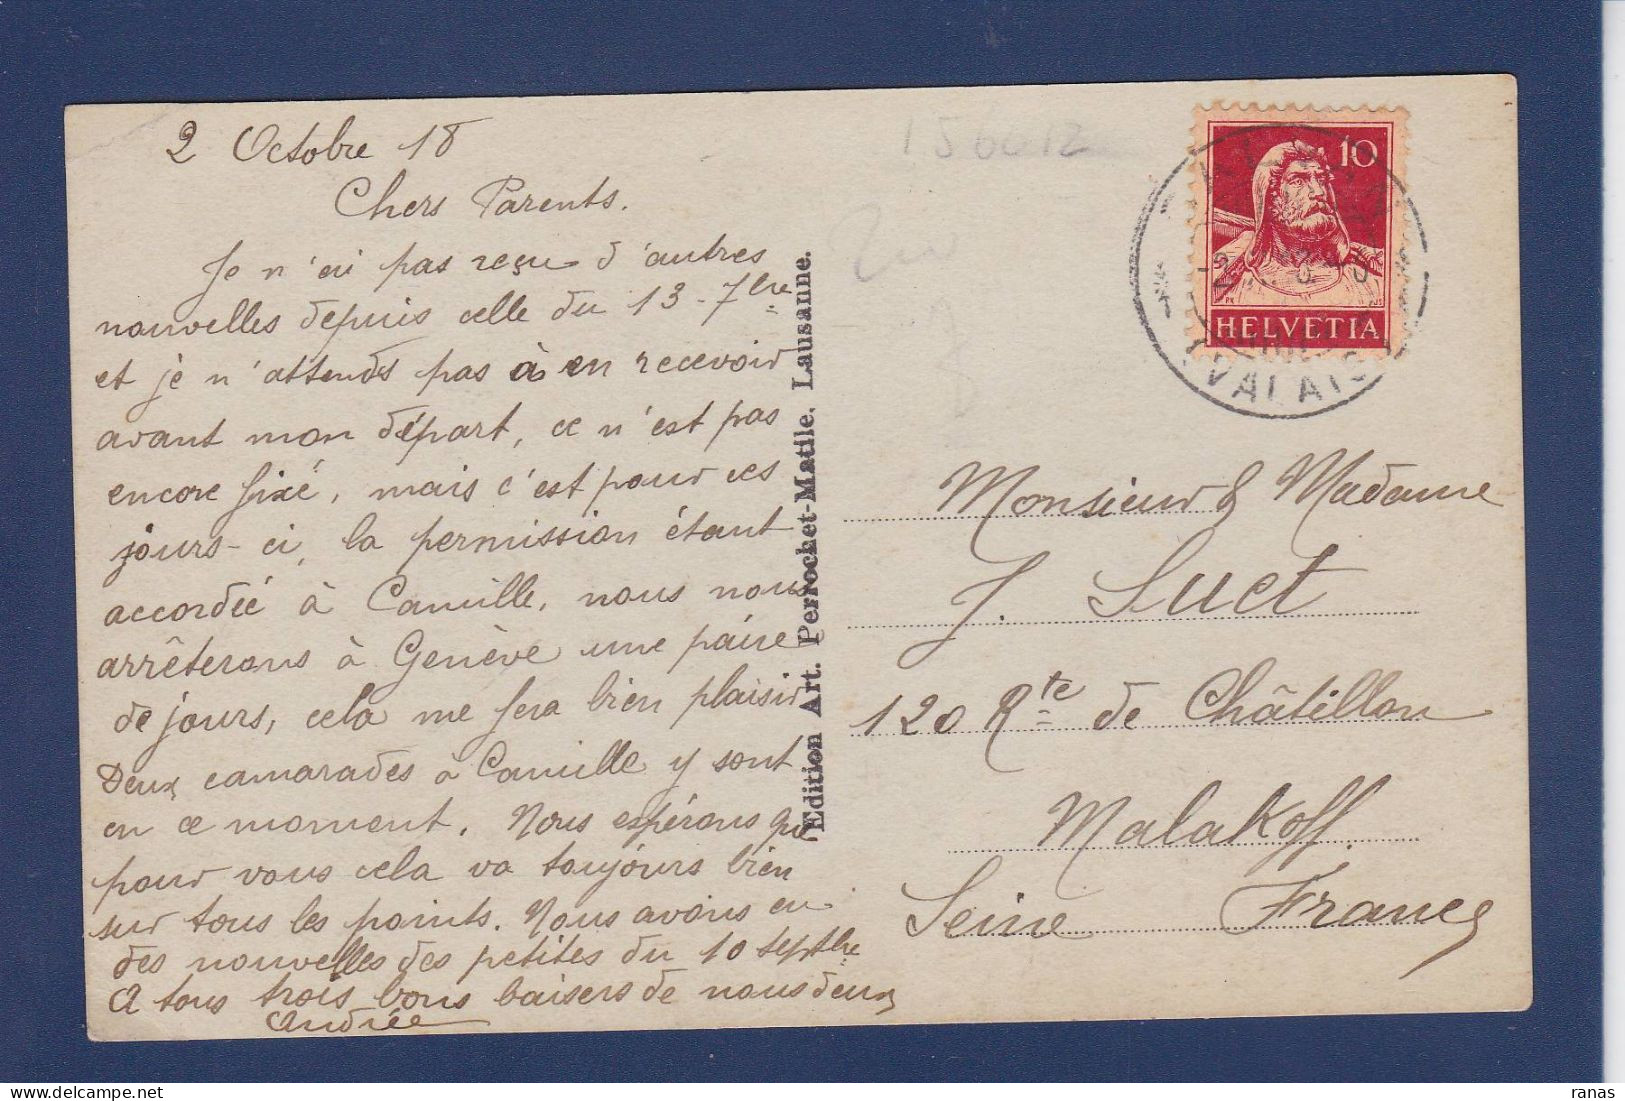 2 Octobre 18
Chers Parents.
Je n'ai pas reçu d'autres
nouvelles depuis celle du 13-7bre
et je n'attends pas à en recevoir
avant mon départ, ce n'est pas
encore fixé, mais c'est pour ces
jours-ci, la permission étant
accordée à Camille, nous nous
arrêterons à Genève une paire
de jours, cela me fera bien plaisir
Deux camarades à Camille y sont
en ce moment. Nous espérons que
pour vous cela va toujours bien
sur tous les points. Nous avons eu
des nouvelles des petites du 10 septbre
A tous trois bons baisers de nous deux
Andrée
Edition Art. Perrochet-Matile. Lausanne.
156612
10
HELVETIA
(VALAIS)
Monsieur & Madame
J. Suct
120 Rte de Châtillon
Malakoff.
Seine France
ranas